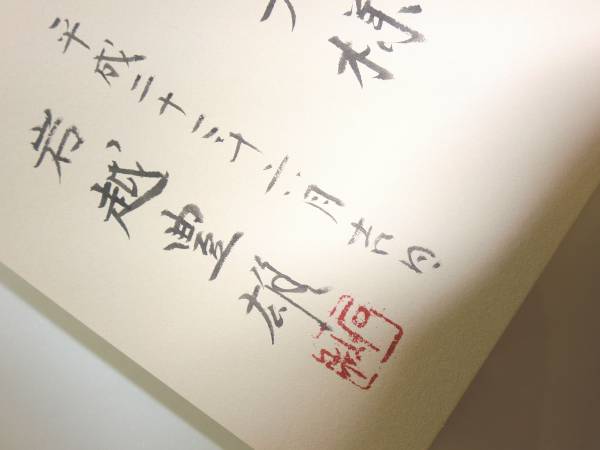 様
平成二十一年六月吉日
岩越豊雄